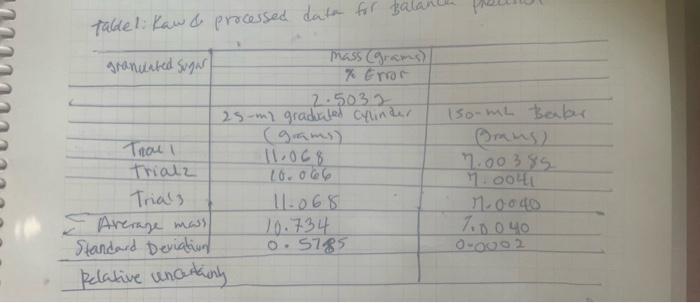 Table 1: Raw & processed data for Balance
granulated sugar mass (grams)
% Error
2.5032
25-ml graduated cylinder 150-mL Beaker
(grams) (grams)
Trial 1 11.068 7.00385
Trial 2 10.066 7.0041
Trial 3 11.068 7.0040
Average mass 10.734 7.0040
Standard Deviation 0.5785 0.0002
Relative uncertainty